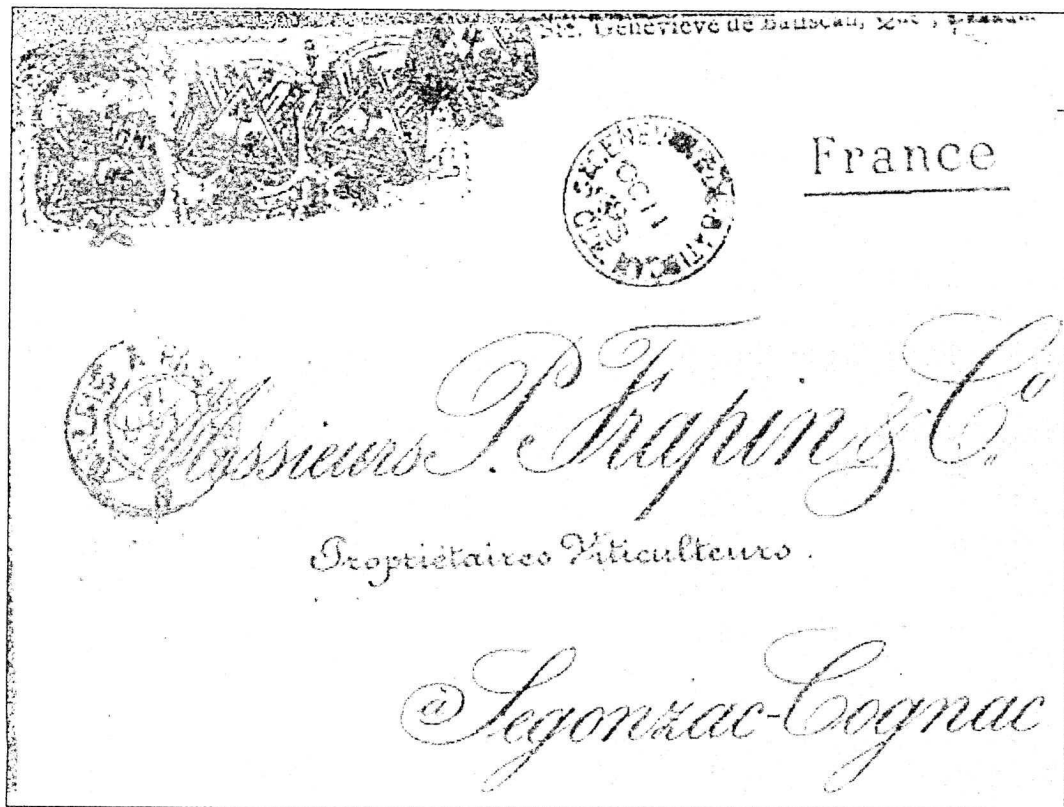 Ste. Geneviève de Batiscan, Que.,
France
STE. GENEVIEVE-DE-BATISCAN
OC 11
Messieurs P. Frapin & Co.
Propriétaires Viticulteurs.
à Segonzac-Cognac